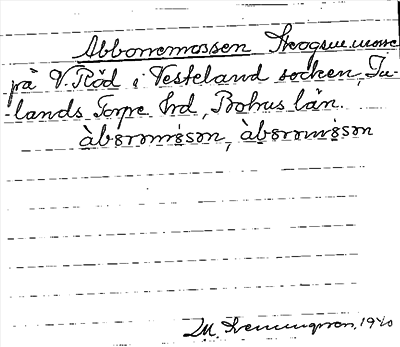 Abborremossen Skogsm. mosse
på V. Röd i Vesteland socken, In-
-lands Torpe hrd, Bohus län.
àbərəmɷ̀sən, àbərəmɷ̀sən
M. 1940